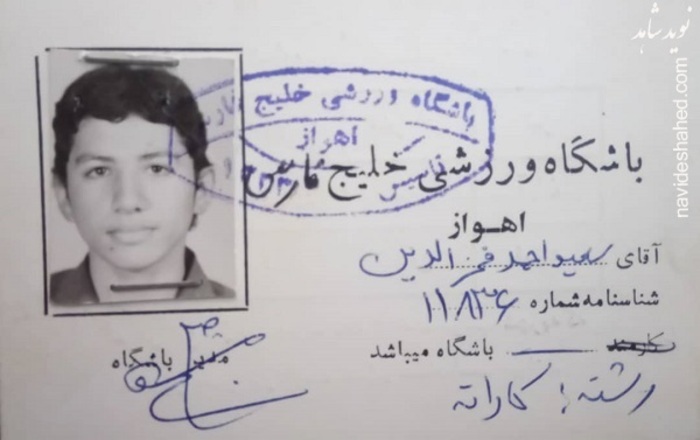 نوید شاهد
navideshahed.com
باشگاه ورزشی خلیج فارس
اهواز
تاسیس
باشگاه ورزشی خلیج فارس
اهواز
آقای سعید احمد فخرالدین
شناسنامه شماره ۱۱۸۳۶
کارمند باشگاه میباشد
رشته: کاراته
مدیر باشگاه